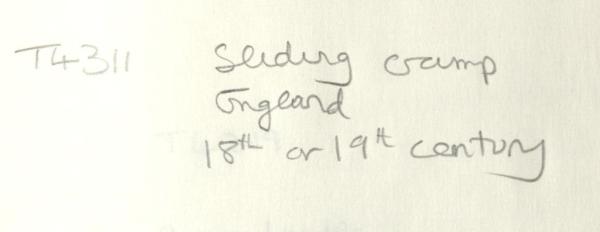 T4311 Sliding cramp
England
18th or 19th century